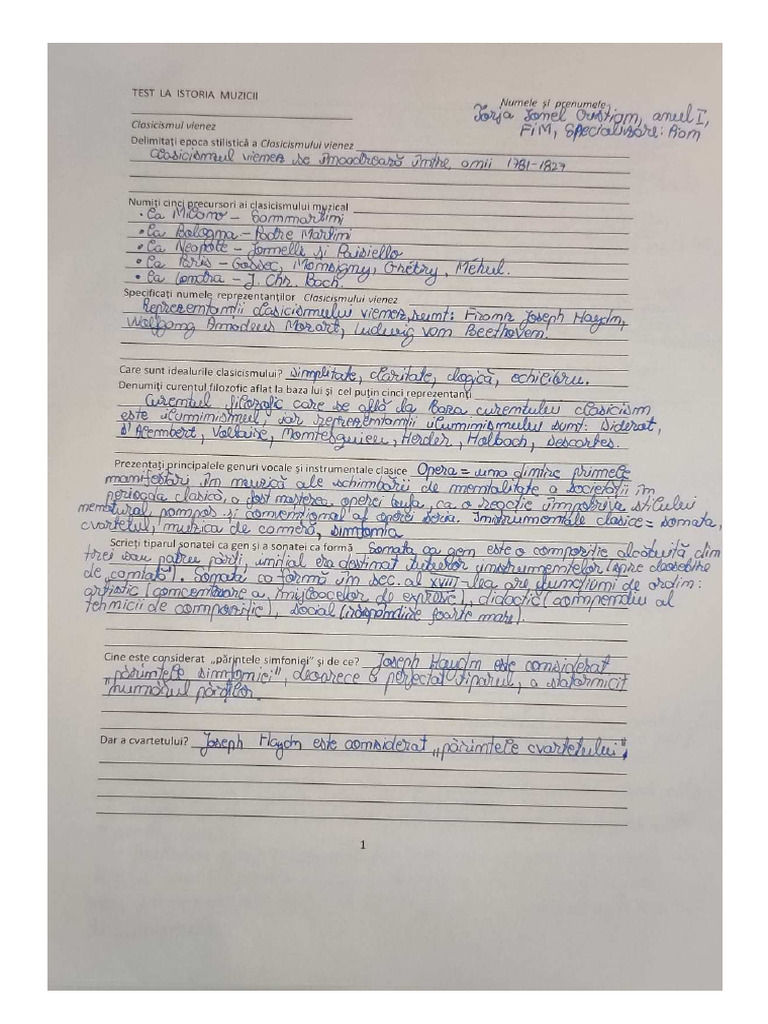 TEST LA ISTORIA MUZICII
Numele și prenumele
Jorja Ionel Cristian, anul I,
FiM, Specializare: Rom
Clasicismul vienez
Delimitați epoca stilistică a Clasicismului vienez
Clasicismul vienez se încadrează între anii 1781-1827
Numiți cinci precursori ai clasicismului muzical
• La Milano – Sammartini
• La Bologna – Padre Martini
• La Neapole – Jommelli și Paisiello
• La Paris – Gossec, Monsigny, Grétry, Méhul.
• La Londra – J. Chr. Bach.
Specificați numele reprezentanților Clasicismului vienez
Reprezentanții clasicismului vienez sunt: Franz Joseph Haydn,
Wolfgang Amadeus Mozart, Ludwig van Beethoven.
Care sunt idealurile clasicismului? simplitate, claritate, logică, echilibru.
Denumiți curentul filozofic aflat la baza lui și cel puțin cinci reprezentanți
Curentul filozofic care se află la baza curentului clasicism
este iluminismul, iar reprezentanții iluminismului sunt: Diderat,
d'Alembert, Voltaire, Montesquieu, Herder, Holbach, Descartes.
Prezentați principalele genuri vocale și instrumentale clasice Opera = una dintre primele
manifestări în muzică ale schimbării de mentalitate a societății în
perioada clasică, a fost nașterea operei bufa, ca o reacție împotriva stilului
nenatural, pompos și convențional al operei seria. Instrumentale clasice = sonata,
cvartetul, muzica de cameră, simfonia
Scrieți tiparul sonatei ca gen și a sonatei ca formă Sonata ca gen este o compoziție alcătuită din
trei sau patru părți, inițial era destinat tuturor instrumentelor (spre deosebire
de „cantată"). Sonata ca formă în sec. al XVIII-lea are funcțiuni de ordin:
artistic (concentrare a mijloacelor de expresie), didactic (compendiu al
tehnicii de compoziție), social (răspândire foarte mare).
Cine este considerat „părintele simfoniei" și de ce? Joseph Haydn este considerat
„părintele simfoniei", deoarece a perfectat tiparul, a statornicit
numărul părților.
Dar a cvartetului? Joseph Haydn este considerat „părintele cvartetului"
1